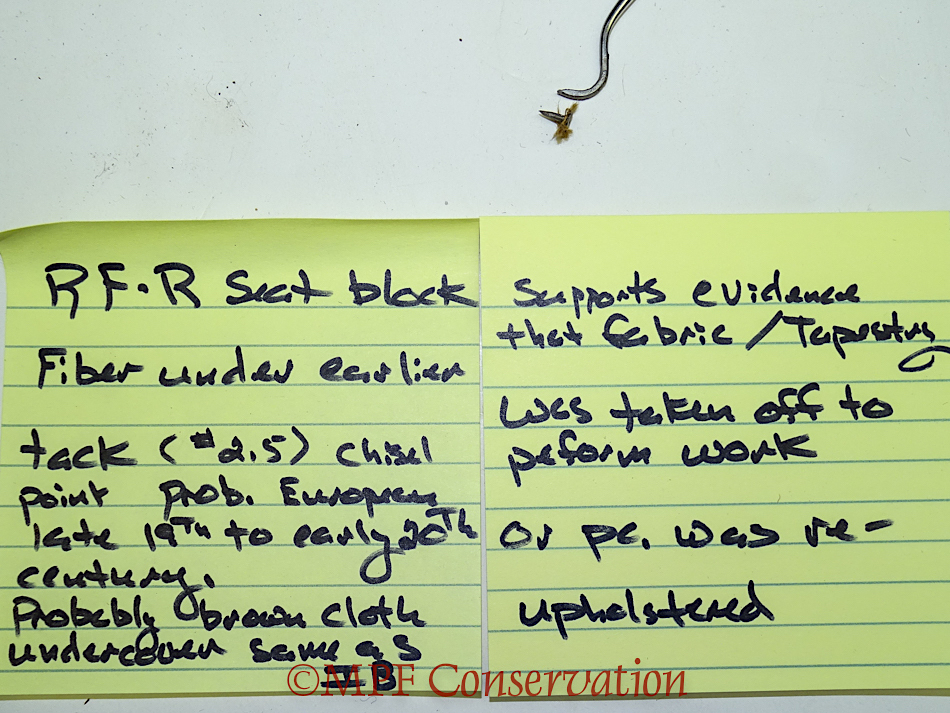 RF-R Seat block
Fiber under earlier
tack (#2.5) chisel
point prob. European
late 19Th to early 20Th
century.
Probably brown cloth
undercover same as
IIB
supports evidence
that fabric / Tapestry
was taken off to
peform work
or pc. was re-
upholstered
©MPF Conservation